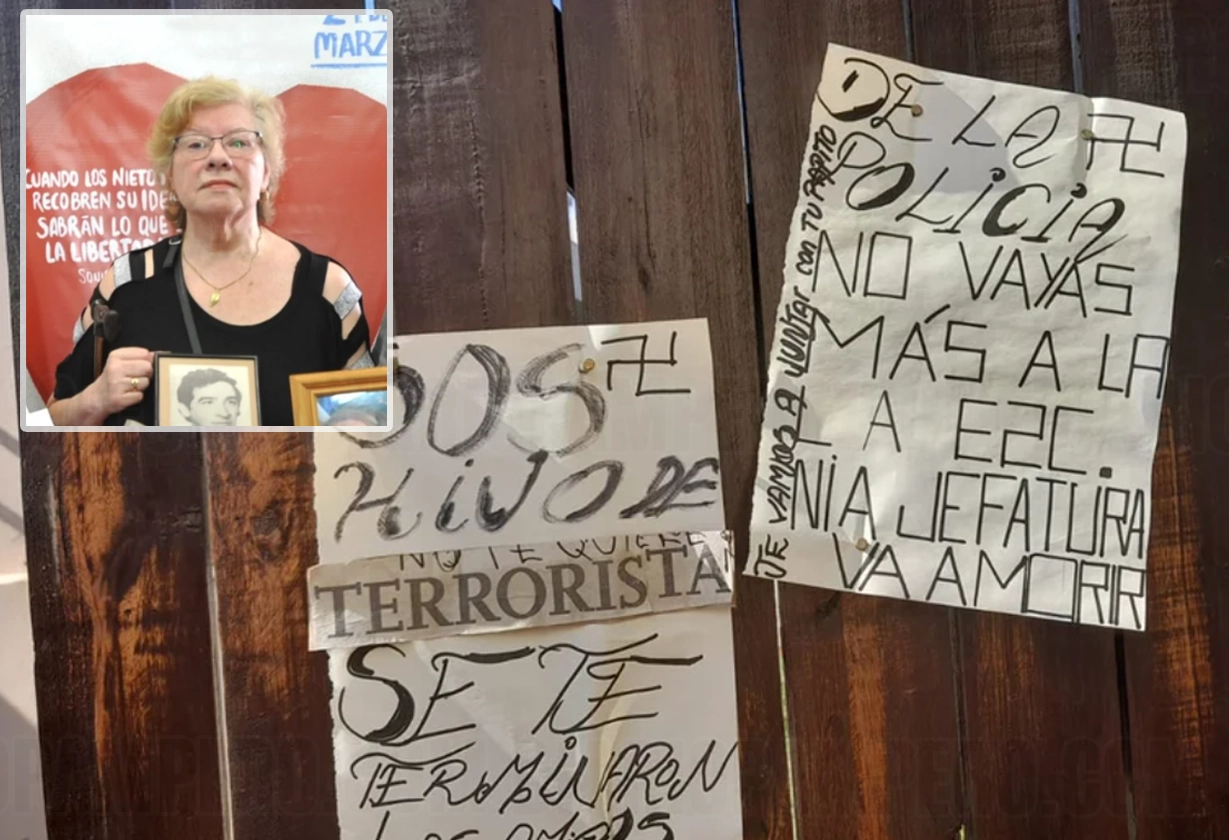 MARZ
CUANDO LOS NIETO
RECOBREN SU IDE
SABRÁN LO QUE
LA LIBERTA
SOS
HiJO DE
NO TE QUIERE
TERRORISTA
SE TE
TERMiNARON
LOS AMiGOS
DE LA
POLiCiA
NO VAYAS
MÁS A LA
LA E2C.
NiA JEFATURA
VA AMORIR
TE VAMOS A JUNTAR con TU PAPiTO